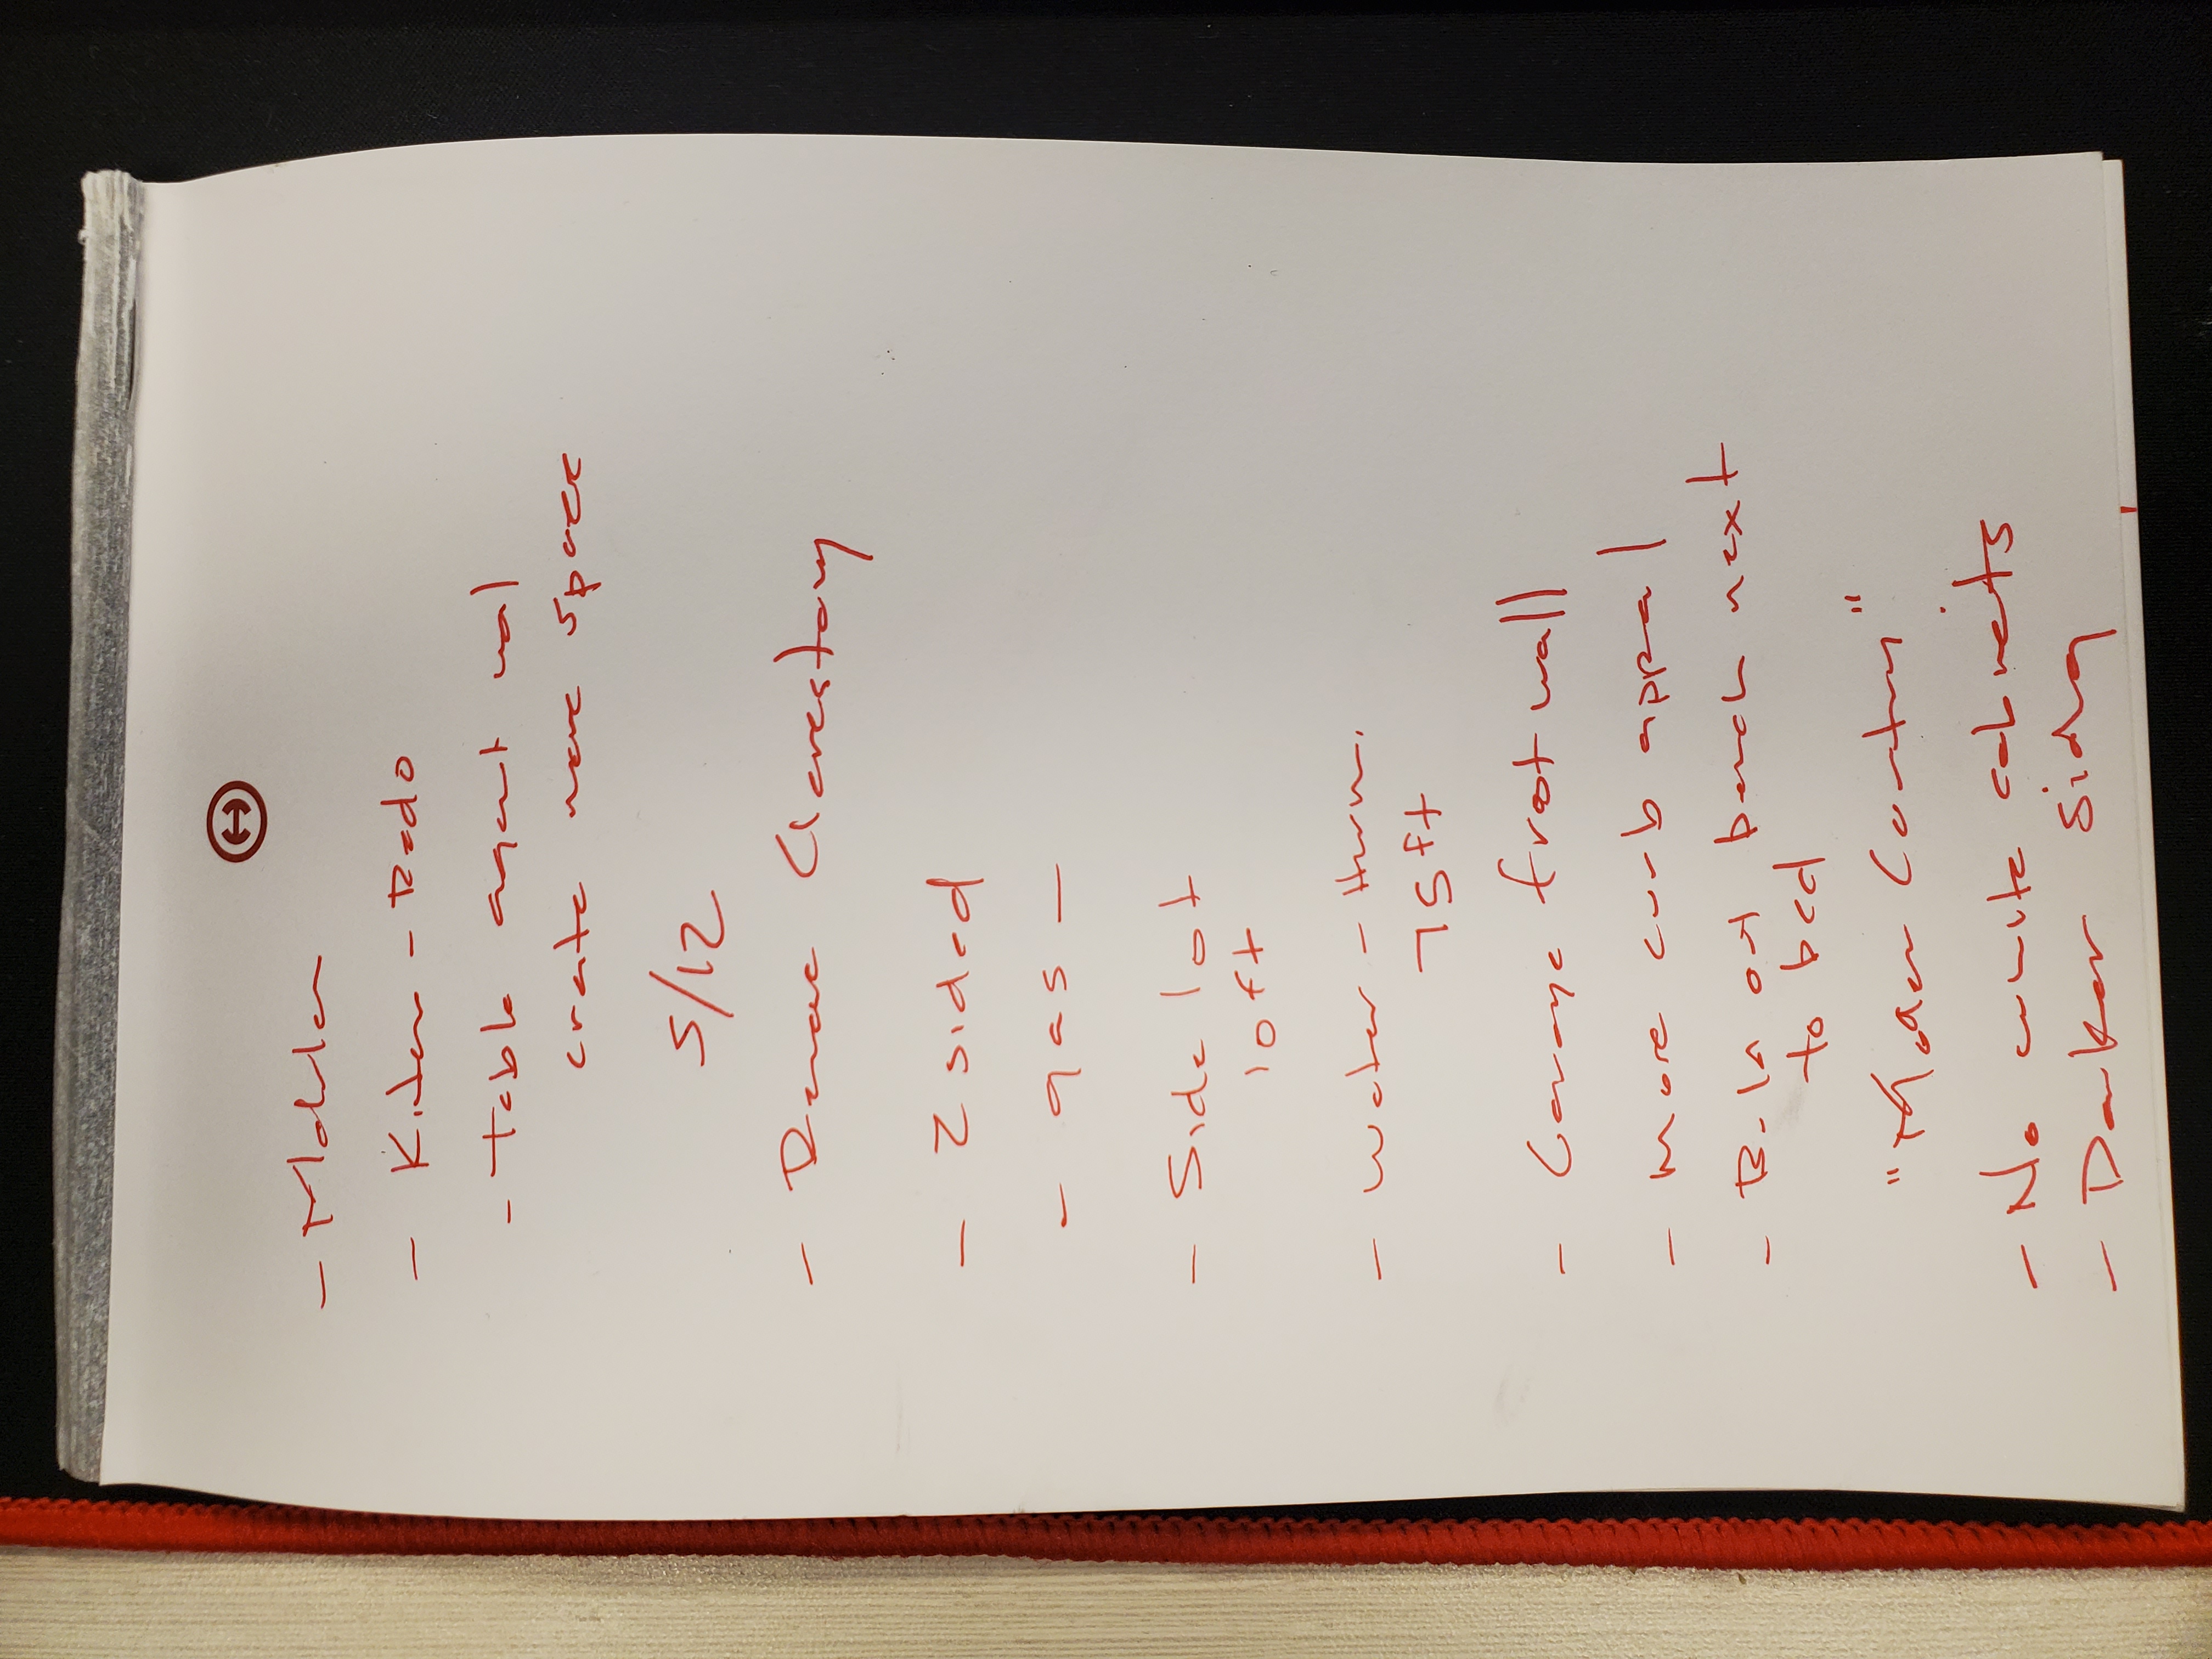 - Kitchen - Redo
- Table against wall
create more space
5/12
- Remove Clerestory
- 2 sided
- gas -
- Side lot
10 ft
- Water -
75 ft
- Garage frost wall
- More curb appeal
- out bench next
to bed
"Modern Country"
- No white cabinets
- Darker siding